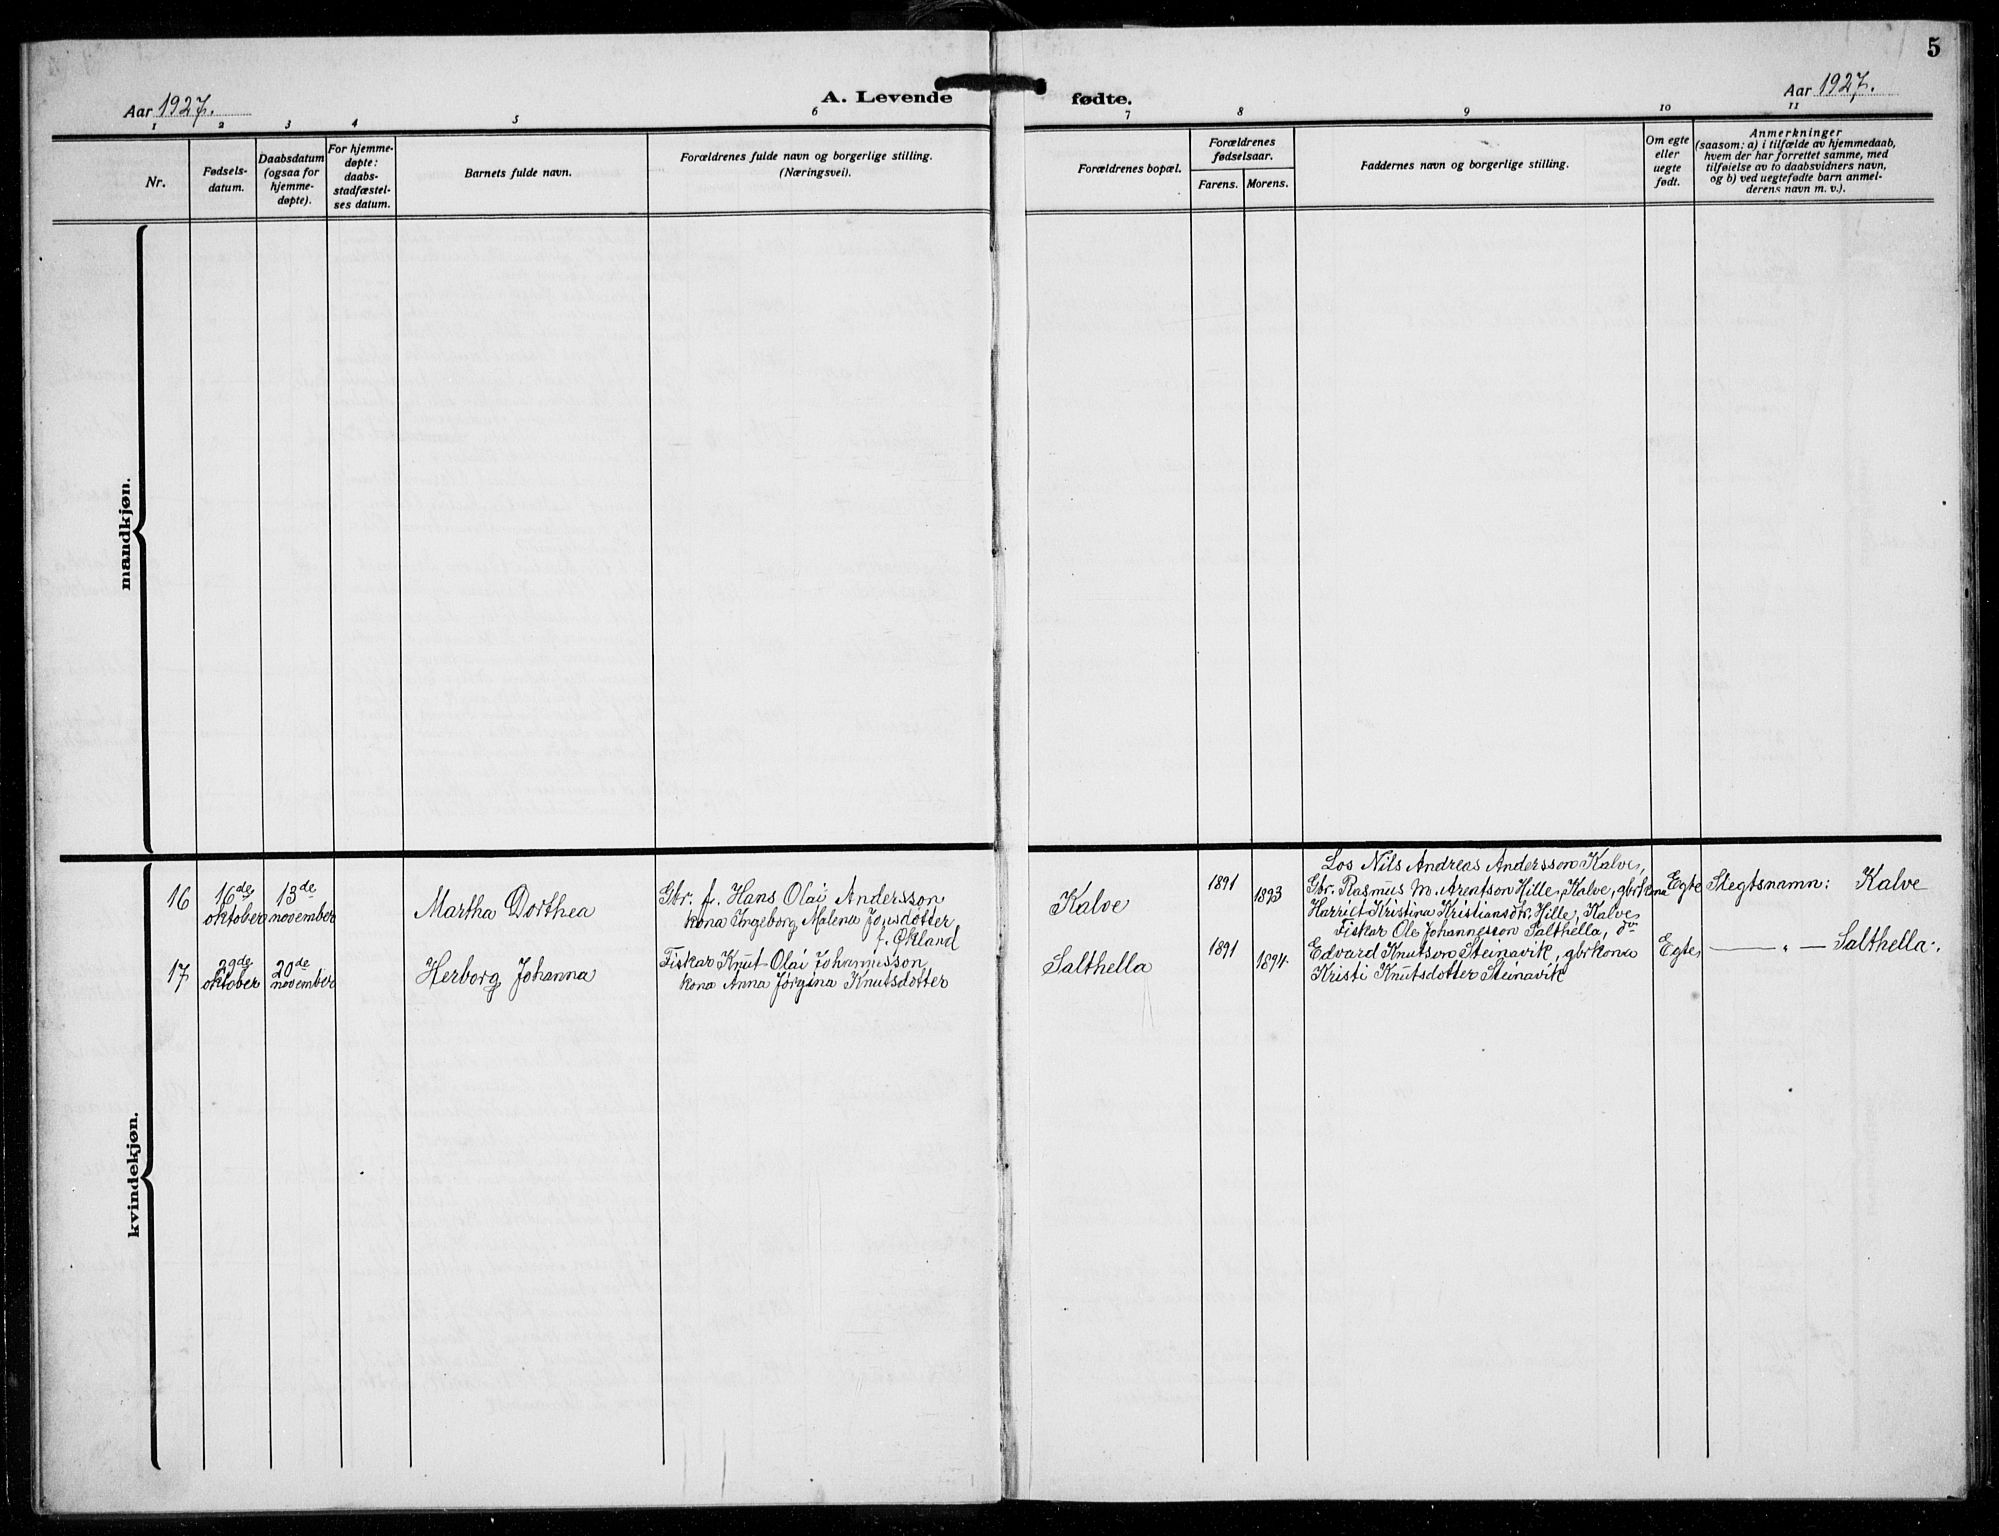 5
Aar 1927.
A. Levende
fødte.
Aar 1927.
1 2 3 4 5 6 7 8 9 10 11
Nr.
Fødsels-
datum.
Daabsdatum
(ogsaa for
hjemme-
døpte).
For hjemme-
døpte:
daabs-
stadfæstel-
ses datum.
Barnets fulde navn.
Forældrenes fulde navn og borgerlige stilling.
(Næringsvei).
Forældrenes bopæl.
Forældrenes
fødselsaar.
Farens. Morens.
Faddernes navn og borgerlige stilling.
Om egte
eller
uegte
født.
Anmerkninger
(saasom: a) i tilfælde av hjemmedaab,
hvem der har forrettet samme, med
tilføielse av to daabsvidners navn,
og b) ved uegtefødte barn anmel-
derens navn m. v.).
mandkjøn.
kvindekjøn.
16
16de
oktober
13de
november
Martha Dorthea
Gbr. f. Hans Olai Andersson
kona Ingeborg Malena Jonsdotter
f. Økland
Kalve
1891
1893
Los Nils Andreas Andersson Kalve,
Gbr. Rasmus M. Arentson Hille, Kalve, gbrkona
Harriet Kristina Kristiansdtr. Hille, Kalve
Egte
Slegtsnamn: Kalve
17
29de
oktober
20de
november
Herborg Johanna
Fiskar Knut Olai Johannesson
kona Anna Jørgina Knutsdotter
Salthella
1891
1894.
Fiskar Ole Johannesson Salthella,
Edvard Knutson Steinavik, gbrkona
Kristi Knutsdotter Steinavik
Egte
— „ — Salthella.